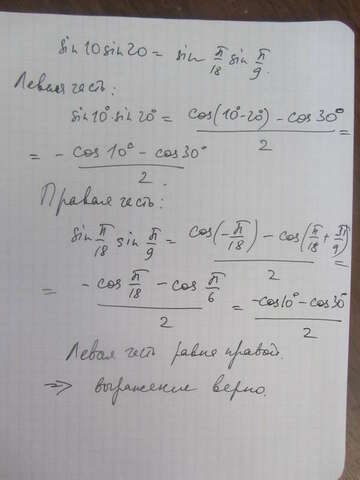 sin 10 sin 20 = sin π/18 sin π/9.
Левая часть:
sin 10° · sin 20° = (cos(10°-20°) - cos 30°)/2 =
= (- cos 10° - cos 30°)/2.
Правая часть:
sin π/18 sin π/9 = (cos(-π/18) - cos(π/18 + π/9))/2 =
= (- cos π/18 - cos π/6)/2 = (-cos 10° - cos 30°)/2
Левая часть равна правой.
=> выражение верно.